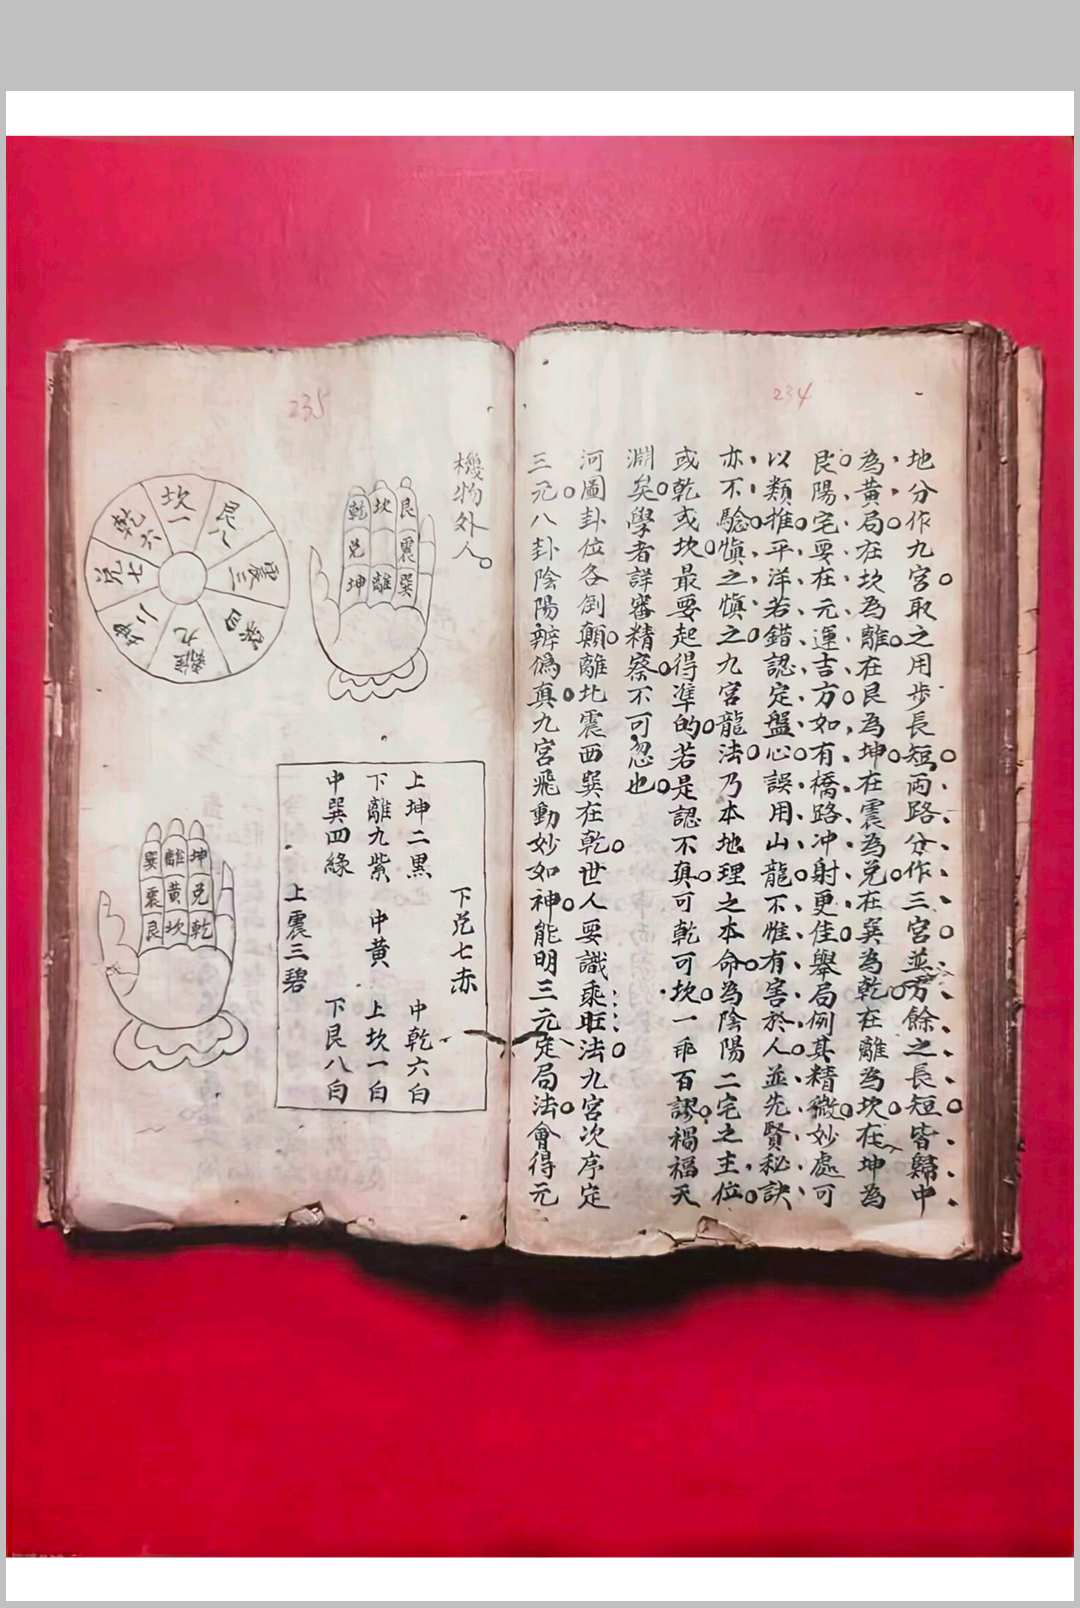 234
地分作九宮取之用步長短両路分作三宮並方餘之長短皆歸中
為黃局在坎為離在艮為坤在震為兌在巽為乾在離為坎在坤為
艮陽宅要在元運吉方如有橋路冲射更佳舉局例其精微妙處可
以類推平洋若錯認定盤心誤用山龍不惟有害於人並先賢秘訣
亦不驗慎之慎之九宮龍法乃本地理之本命為陰陽二宅之主位
或乾或坎最要起得準的若是認不真可乾可坎一乖百謬禍福天
淵矣學者詳審精察不可忽也
河圖卦位各倒顛離北震西巽在乾世人要識乘旺法九宮次序定
三元八卦陰陽辨偽真九宮飛動妙如神能明三元定局法會得元
235
機物外人
艮 坎 乾
震 兌
巽 離 坤
坎一
艮八
震三
巽四
離九
坤二
兌七
乾六
下兌七赤
上坤二黑 中乾六白
下離九紫 中黃 上坎一白
中巽四綠 下艮八白
上震三碧
坤 離 巽
兌 黃 震
乾 坎 艮